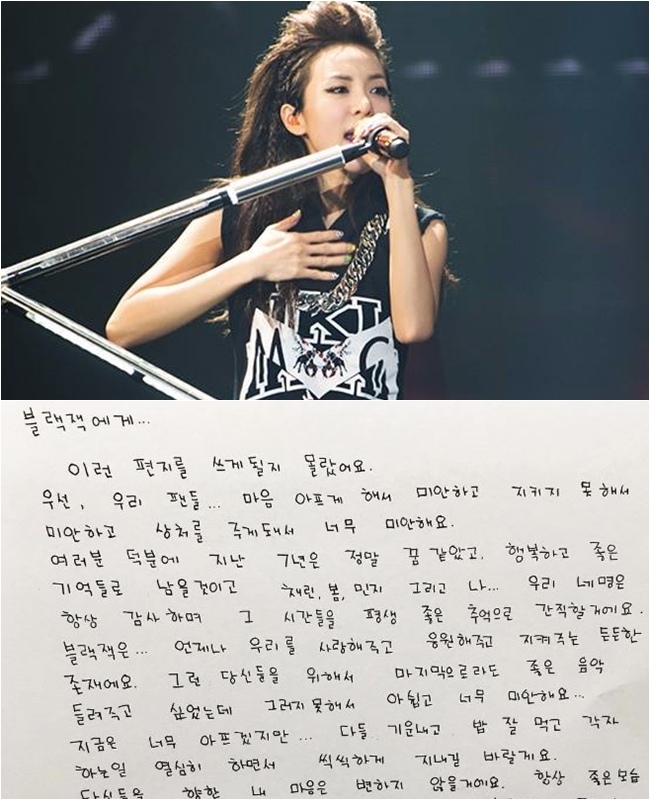 블랙잭에게...
이런 편지를 쓰게될지 몰랐어요.
우선, 우리 팬들... 마음 아프게 해서 미안하고 지키지 못해서
미안하고 상처를 주게돼서 너무 미안해요.
여러분 덕분에 지난 7년은 정말 꿈 같았고, 행복하고 좋은
기억들로 남을것이고 채린, 봄, 민지 그리고 나... 우리 네명은
항상 감사하며 그 시간들을 평생 좋은 추억으로 간직할거에요.
블랙잭은... 언제나 우리를 사랑해주고 응원해주고 지켜주는 든든한
존재에요. 그런 당신들을 위해서 마지막으로라도 좋은 음악
들려주고 싶었는데 그러지못해서 아쉽고 너무 미안해요...
지금은 너무 아프겠지만... 다들 기운내고 밥 잘 먹고 각자
하는일 열심히 하면서 씩씩하게 지내길 바랄게요.
당신들을 향한 내 마음은 변하지 않을거에요. 항상 좋은모습